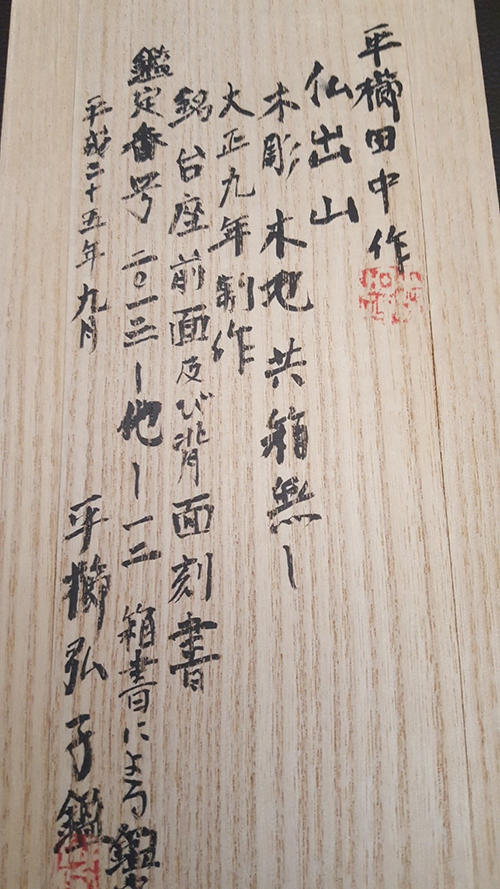 平櫛田中作
仏出山
木彫 木地 共箱無し
大正九年制作
銘 台座前面及び背面刻書
鑑定番号 二〇一三-他-一二 箱書による鑑定
平成二十五年九月
平櫛弘子鑑